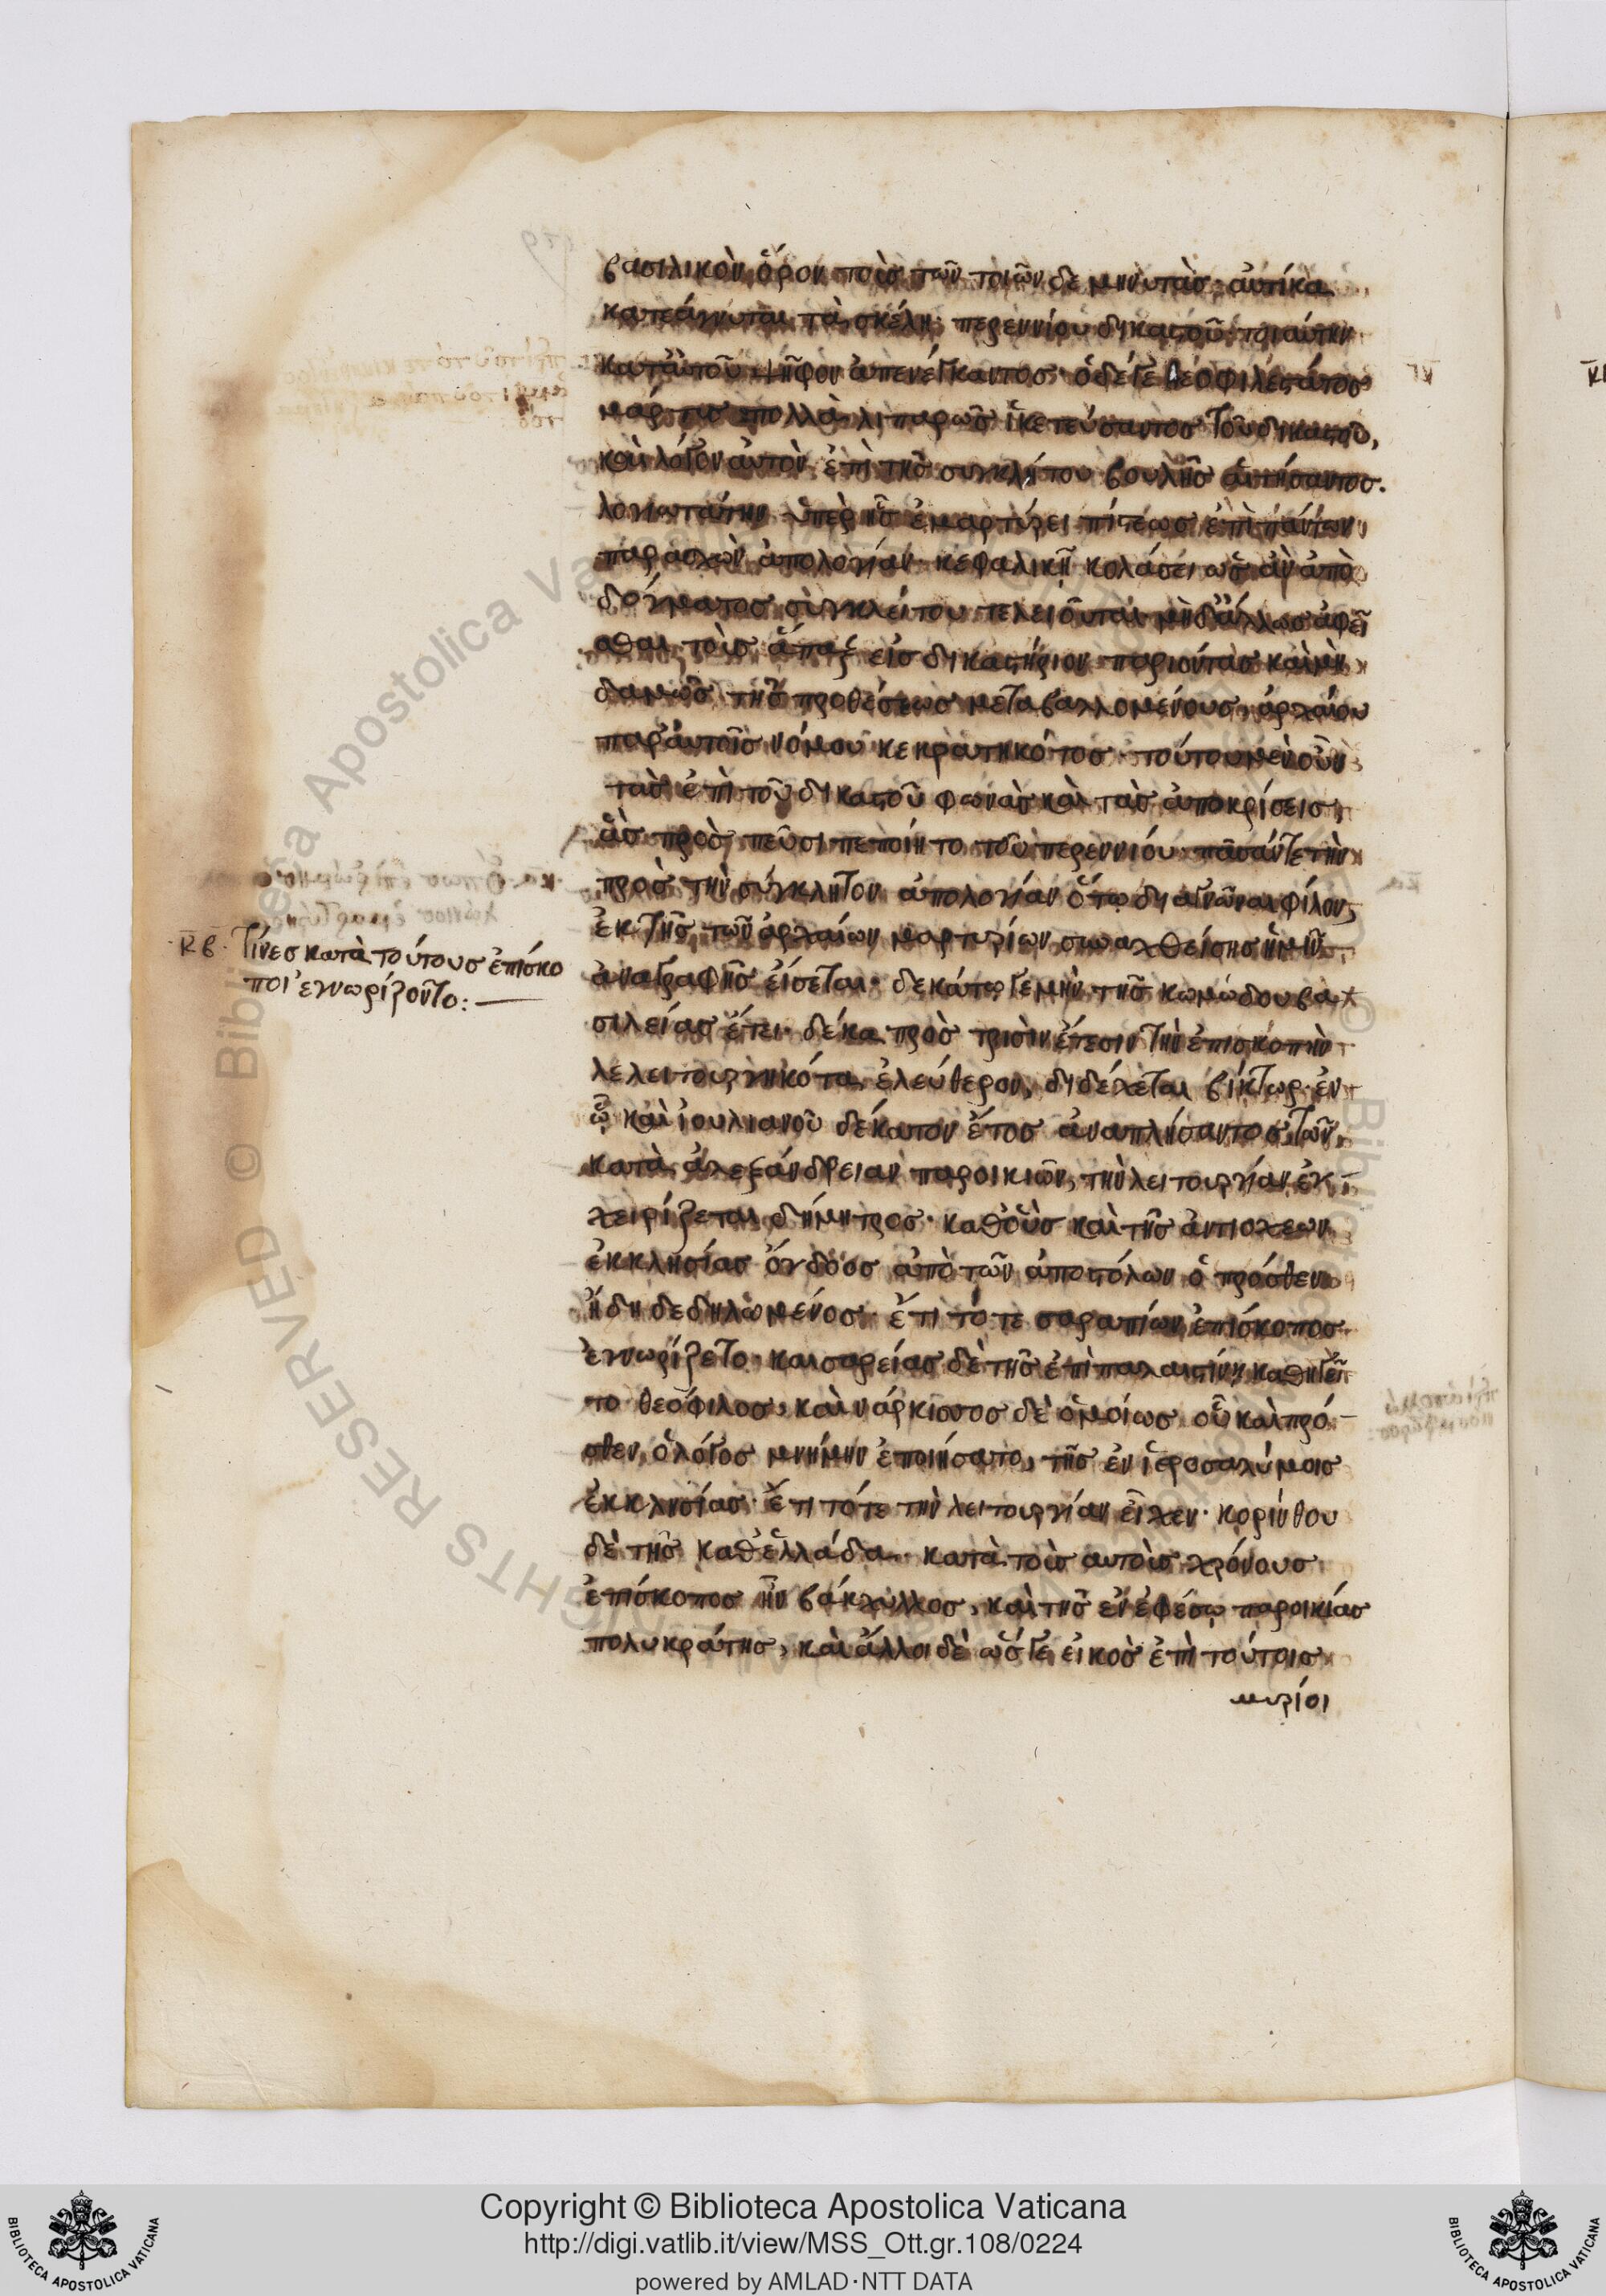 βασιλικὸν ὅρον τοὺς τῶν τοιῶνδε μηνυτὰς· αὐτίκα
κατεάγνυται τὰ σκέλη· περεννίου δικαστοῦ τοιαύτην
κατ' αὐτοῦ ψῆφον ἀπενέγκαντος· ὁ δέ γε θεοφιλέστατος
μάρτυς πολλὰ λιπαρῶς ἱκετεύσαντος τοῦ δικαστοῦ,
καὶ λόγον αὐτὸν ἐπὶ τῆς συγκλήτου βουλῆς αἰτήσαντος.
λογιωτάτην ὑπὲρ ἧς ἐμαρτύρει πίστεως ἐπὶ πάντων
παρασχὼν ἀπολογίαν· κεφαλικῇ κολάσει ὡς ἂν ἀπὸ
δόγματος συγκλείτου τελειοῦται μηδ' ἄλλως ἀφεῖ
σθαι τοὺς ἅπαξ εἰς δικαστήριον παριόντας καὶ μη
δαμῶς τῆς προθέσεως μεταβαλλομένους, ἀρχαίου
παρ' αὐτοῖς νόμου κεκρατηκότος· τούτου μὲν οὖν
τὰς ἐπὶ τοῦ δικαστοῦ φωνὰς καὶ τὰς ἀποκρίσεις,
ἃς πρὸς πεῦσι πεποίητο τοῦ περεννίου πᾶσάν τε τὴν
πρὸς τὴν σύγκλητον ἀπολογίαν ὅτῳ διαγνῶναι φίλον,
ἐκ τῆς τῶν ἀρχαίων μαρτυρίων συναχθείσης ἡμῖν
ἀναγραφῆς εἴσεται· δεκάτῳ γε μὴν τῆς κωμώδου βα
σιλείας ἔτει· δέκα πρὸς τρισὶν ἔτεσιν τὴν ἐπισκοπὴν
λελειτουργηκότα ἐλεύθερον, διδέχεται βίκτωρ· ἐν
ᾧ καὶ ἰουλιανοῦ δέκατον ἔτος ἀναπλήσαντος, τῶν
κατὰ ἀλεξάνδρειαν παροικιῶν, τὴν λειτουργίαν ἐγ
χειρίζεται δήμητρος· καθ' οὓς καὶ τῆς ἀντιοχεων
ἐκκλησίας ὄγδοος ἀπὸ τῶν ἀποστόλων ὁ πρόσθεν
ἤδη δεδηλωμένος· ἔτι τότε σαραπίων ἐπίσκοπος
ἐγνωρίζετο· καισαρείας δὲ τῆς ἐπὶ παλαιστίνη καθηγεῖ
το θεόφιλος, καὶ νάρκισσος δὲ ὁμοίως οὗ καὶ πρό
σθεν, ὁ λόγος μνήμην ἐποιήσατο, τῆς ἐν ἱεροσαλύμοις
ἐκκλησίας ἔτι τότε τὴν λειτουργίαν εἶχεν· κορίνθου
δὲ τῆς καθ' ἑλλάδα κατὰ τοὺς αὐτοὺς χρόνους
ἐπίσκοπος ἦν βάκχυλλος, καὶ τῆς ἐν ἐφέσῳ παροικίας
πολυκράτης, καὶ ἄλλοι δὲ ὥς γε εἰκὸς ἐπὶ τούτοις
μυρίοι
κβ· τίνες κατὰ τούτους ἐπίσκο
ποι ἐγνωρίζοντο:—
Copyright © Biblioteca Apostolica Vaticana
http://digi.vatlib.it/view/MSS_Ott.gr.108/0224
powered by AMLAD·NTT DATA